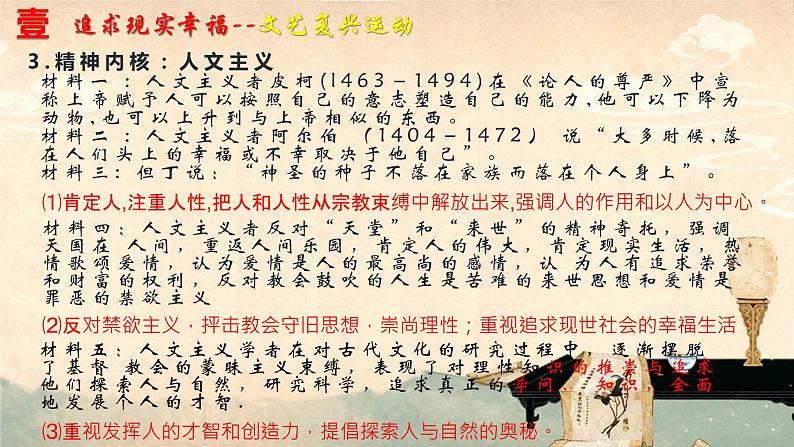 壹 追求现实幸福--文艺复兴运动
3.精神内核：人文主义
材料一：人文主义者皮柯(1463-1494)在《论人的尊严》中宣
称上帝赋予人可以按照自己的意志塑造自己的能力,他可以下降为
动物,也可以上升到与上帝相似的东西。
材料二：人文主义者阿尔伯（1404-1472）说“大多时候,落
在人们头上的幸福或不幸取决于他自己”。
材料三:但丁说：“神圣的种子不落在家族而落在个人身上”。
⑴肯定人,注重人性,把人和人性从宗教束缚中解放出来,强调人的作用和以人为中心。
材料四：人文主义者反对“天堂”和“来世”的精神寄托，强调
天国在人间，重返人间乐园，肯定人的伟大，肯定现实生活，热
情歌颂爱情，认为爱情是人的最高尚的感情，认为人有追求荣誉
和财富的权利，反对教会鼓吹的人生是苦难的来世思想和爱情是
罪恶的禁欲主义
⑵反对禁欲主义，抨击教会守旧思想，崇尚理性；重视追求现世社会的幸福生活
材料五：人文主义学者在对古代文化的研究过程中，逐渐摆脱
了基督教会的蒙昧主义束缚，表现了对理性知识的推崇与追求
他们探索人与自然，研究科学，追求真正的学问、知识，全面
地发展个人的才智.
⑶重视发挥人的才智和创造力，提倡探索人与自然的奥秘。